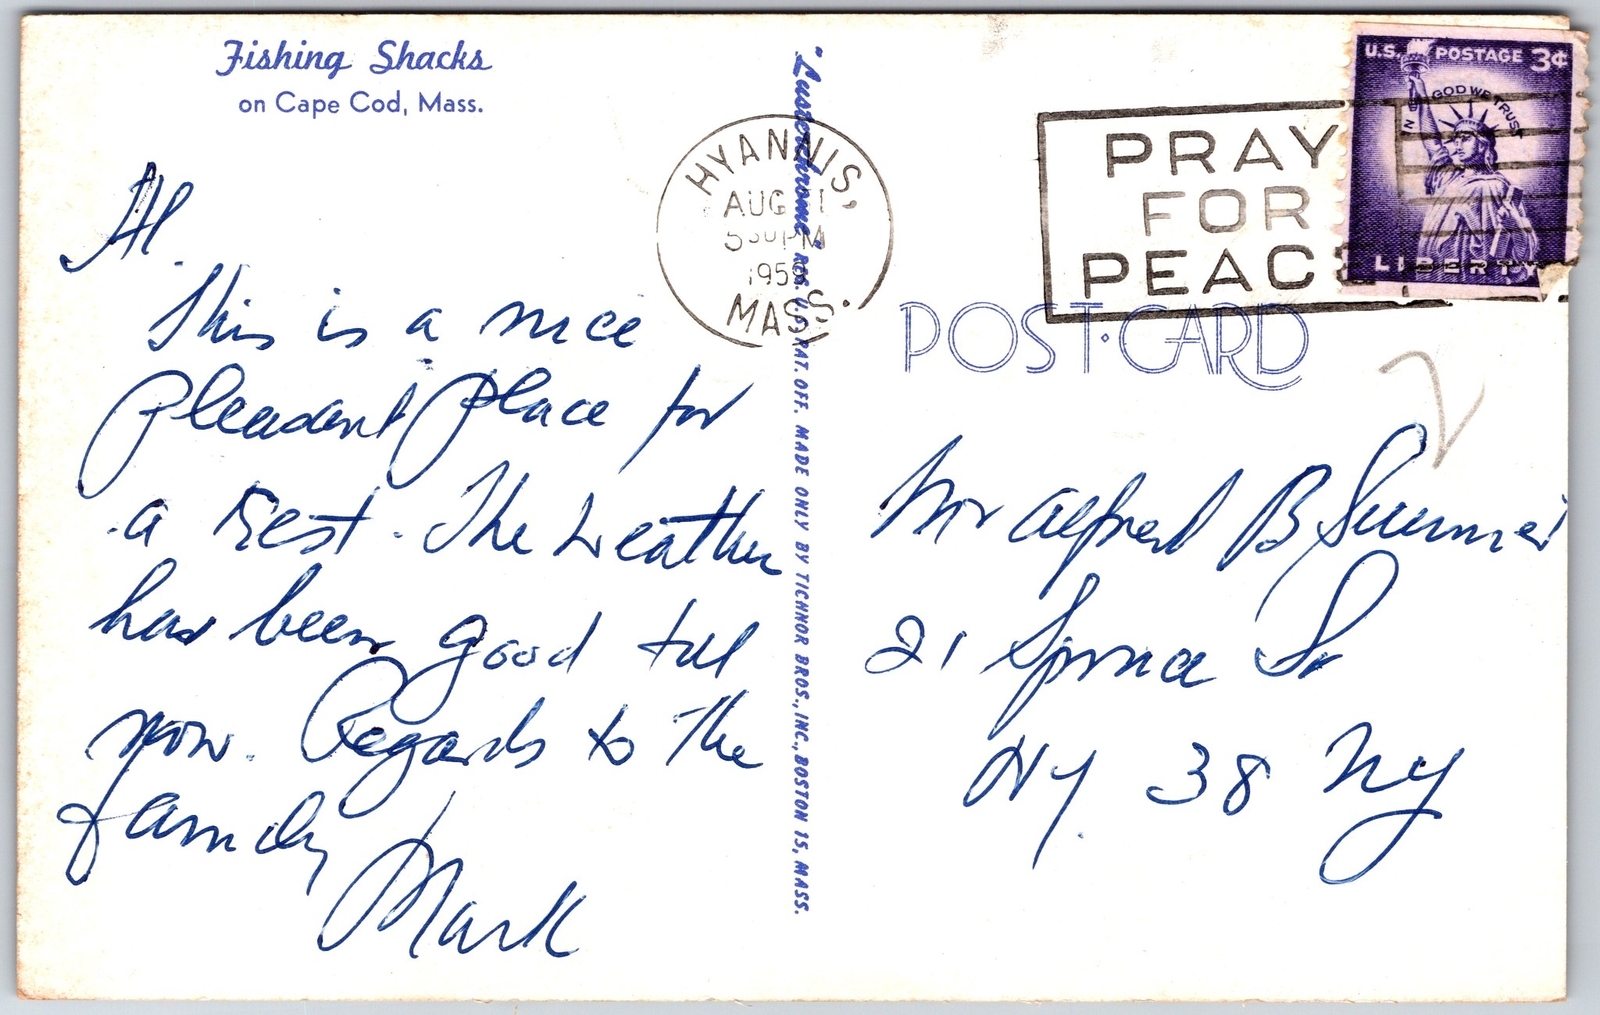 Fishing Shacks
on Cape Cod, Mass.
Al.
This is a nice
pleasant place for
a rest. The weather
has been good till
now. Regards to the
family
Mark
"Lusterchrome" REG. U.S. PAT. OFF. MADE ONLY BY TICHNOR BROS., INC., BOSTON 15, MASS.
HYANNIS,
AUG 1
530 PM
195
MASS.
PRAY
FOR
PEACE
U.S. POSTAGE 3¢
IN GOD WE TRUST
LIBERTY
POST·CARD
2
Mr Alfred B Summer
21 Spruce St
NY. 38 NY